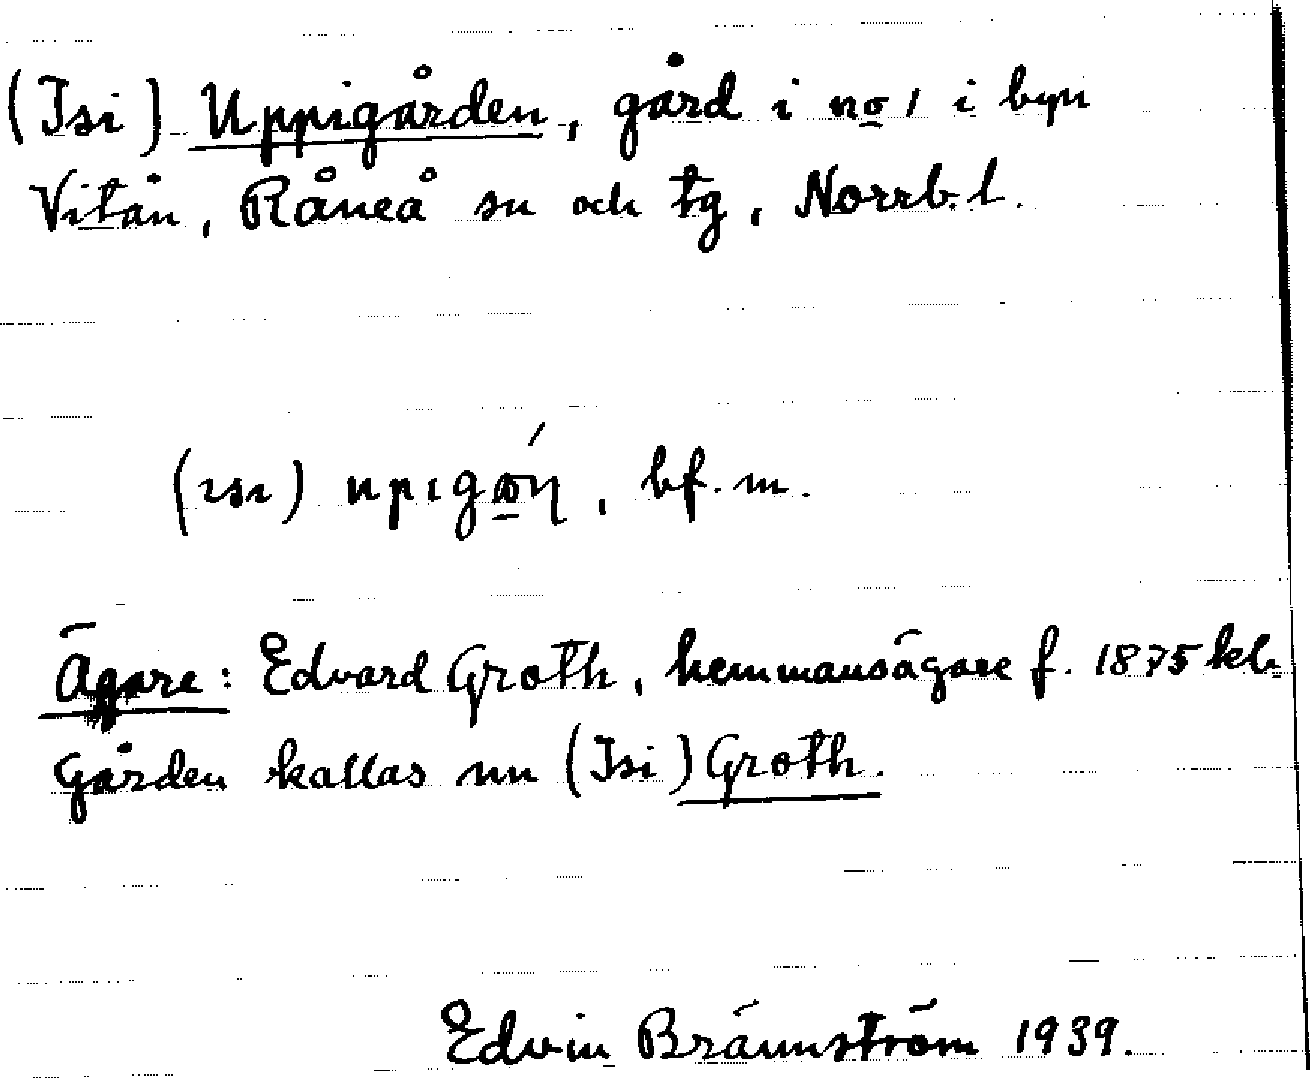 (Isi) Uppigården, gård i no 1 i byn
Vitån, Råneå sn och tg, Norrb. l.
(ısı) upıgǻṇ, bf. m.
Ägare: Edvard Groth, hemmansägare f. 1875 kb.
Gården kallas nu (Isi) Groth.
Edvin Brännström 1939.